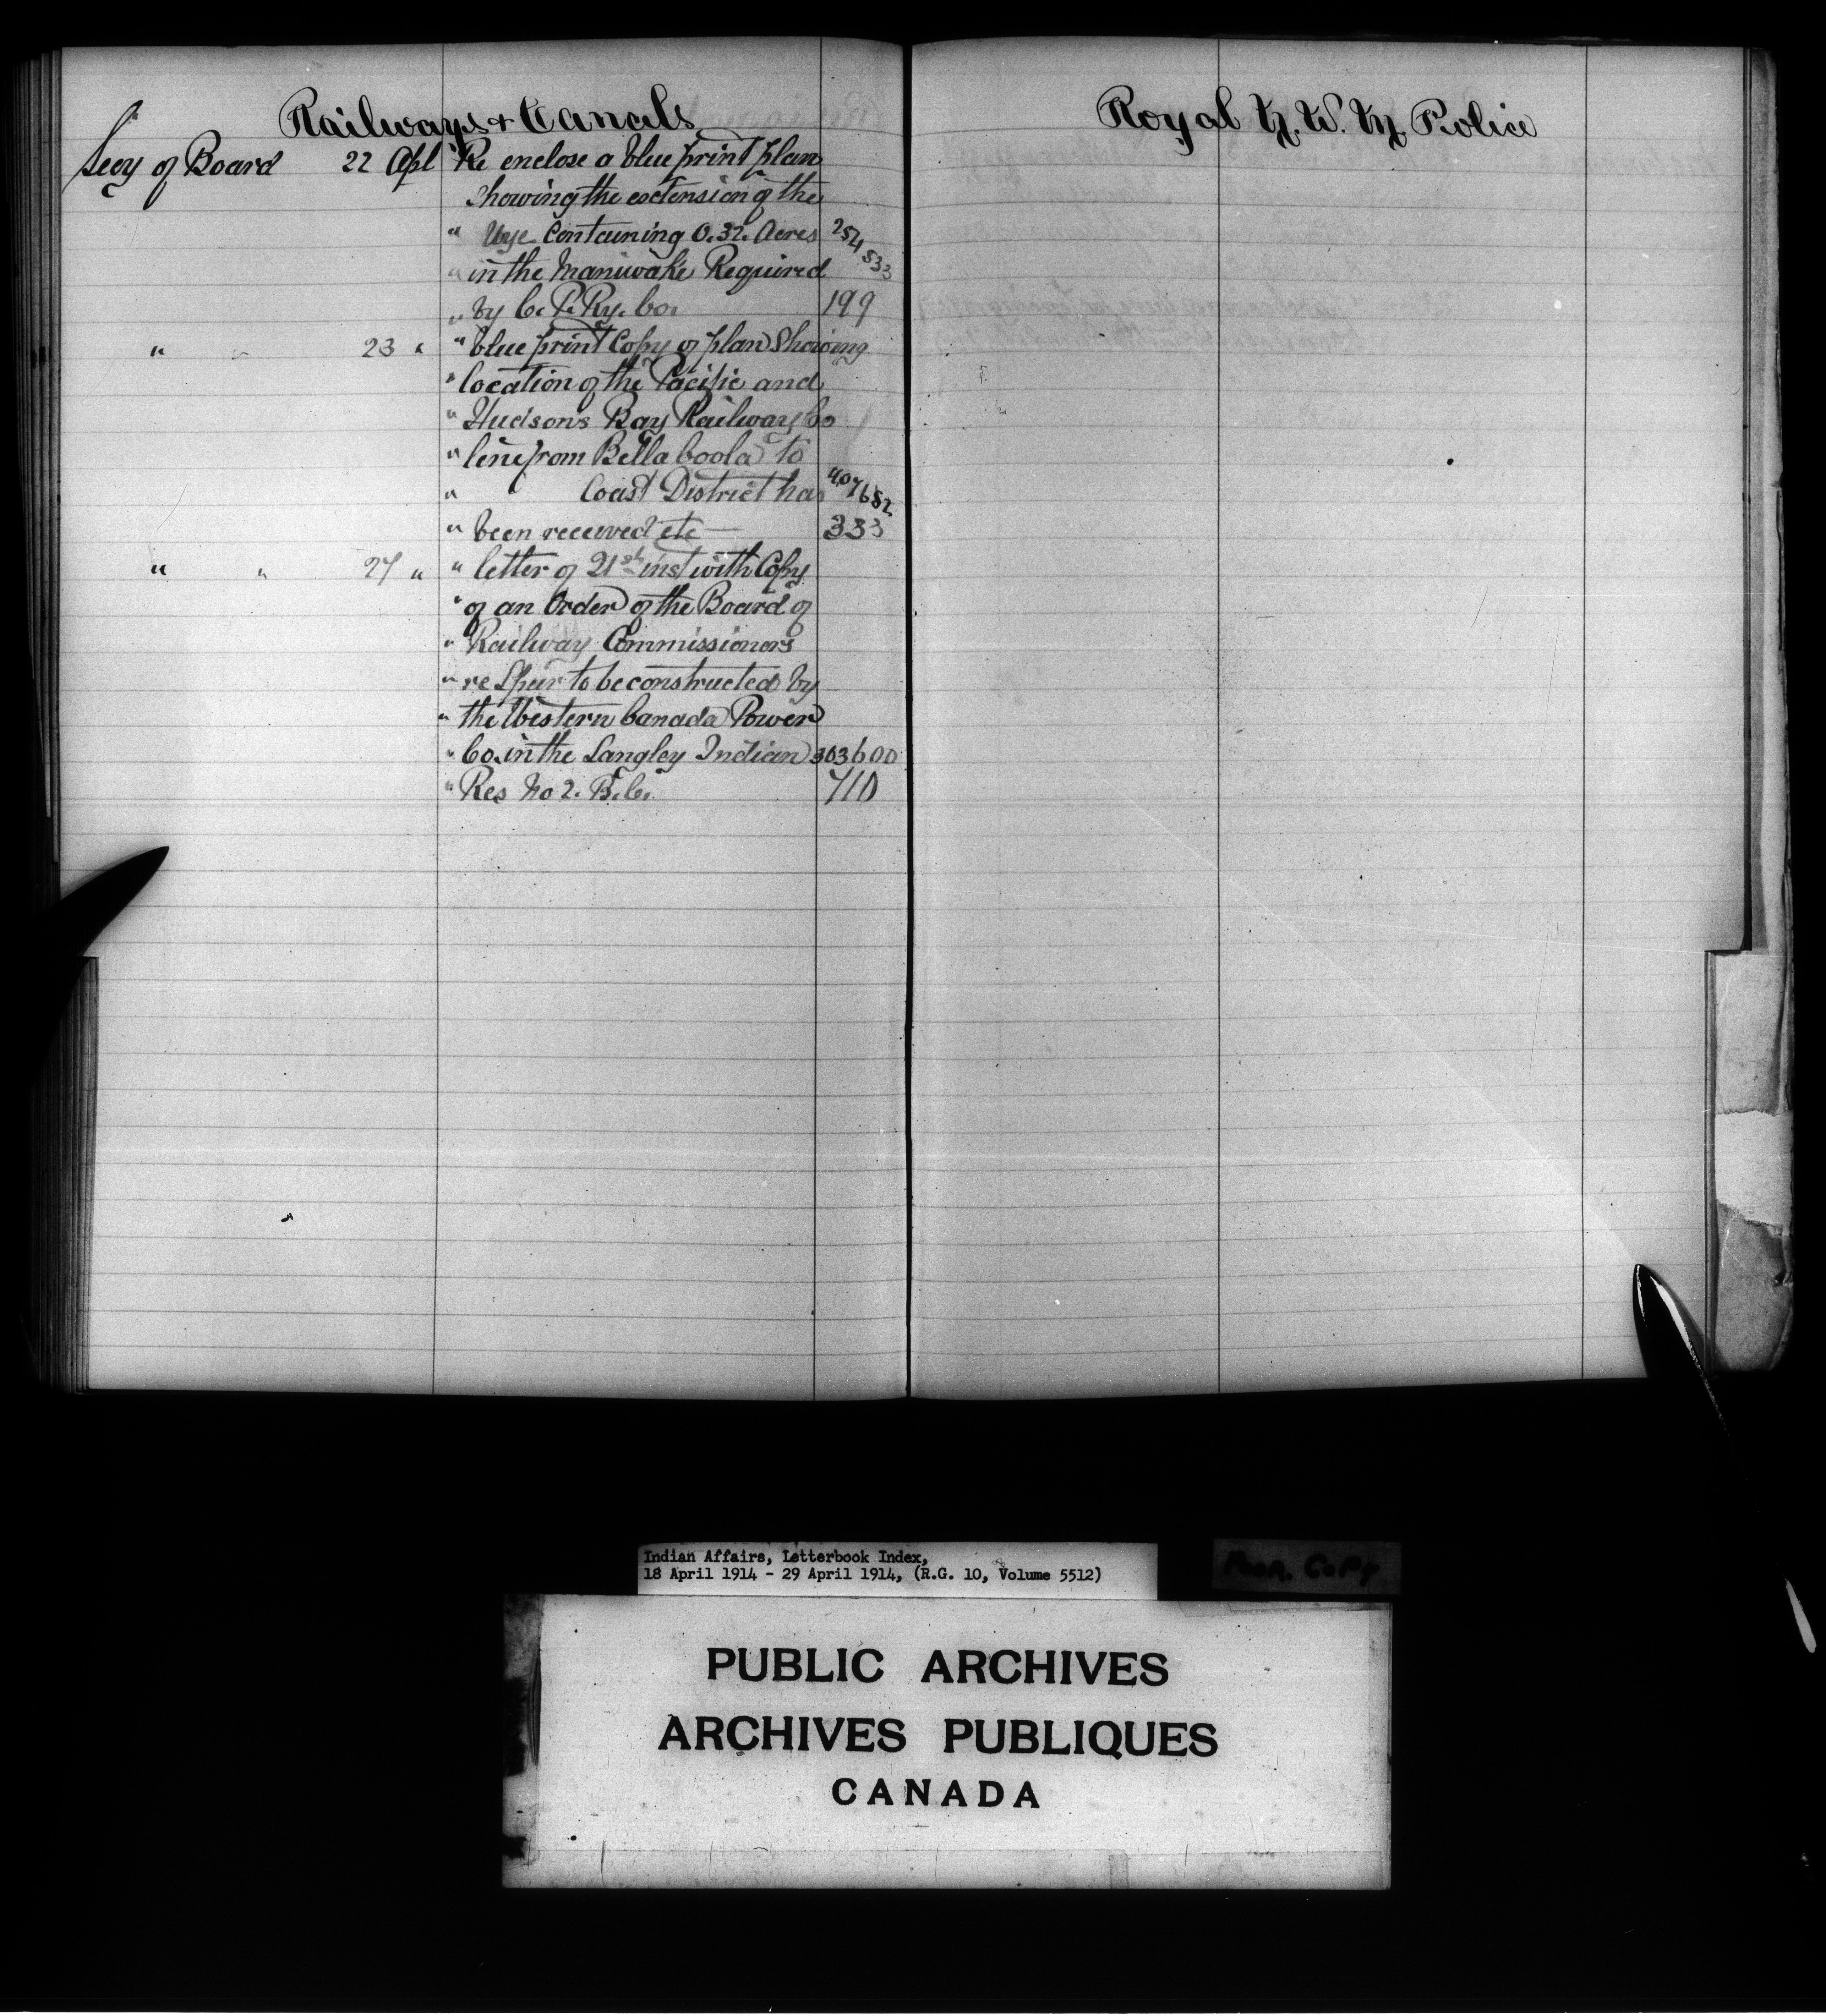 Railways & Canals
Secy of Board 22 Apl Re enclose a blue print plan
showing the extension of the
" Wye Containing 0.32 Acres 254533
" in the Maniwaki Required
" by C. P. Ry. Co. 199
" " 23 " " blue print Copy of plan Showing
" location of the Pacific and
" Hudsons Bay Railway Co
" line from Bella Coola to
" Coast District has 407682
" been received etc 333
" " 27 " " letter of 21st inst with Copy
" of an Order of the Board of
" Railway Commissioners
" re Spur to be constructed by
" the Western Canada Power
" Co. in the Langley Indian 303600
" Res No 2. B.C. 710
Royal N. W. M. Police
Indian Affairs, Letterbook Index,
18 April 1914 - 29 April 1914, (R.G. 10, Volume 5512)
Poor Copy
PUBLIC ARCHIVES
ARCHIVES PUBLIQUES
CANADA